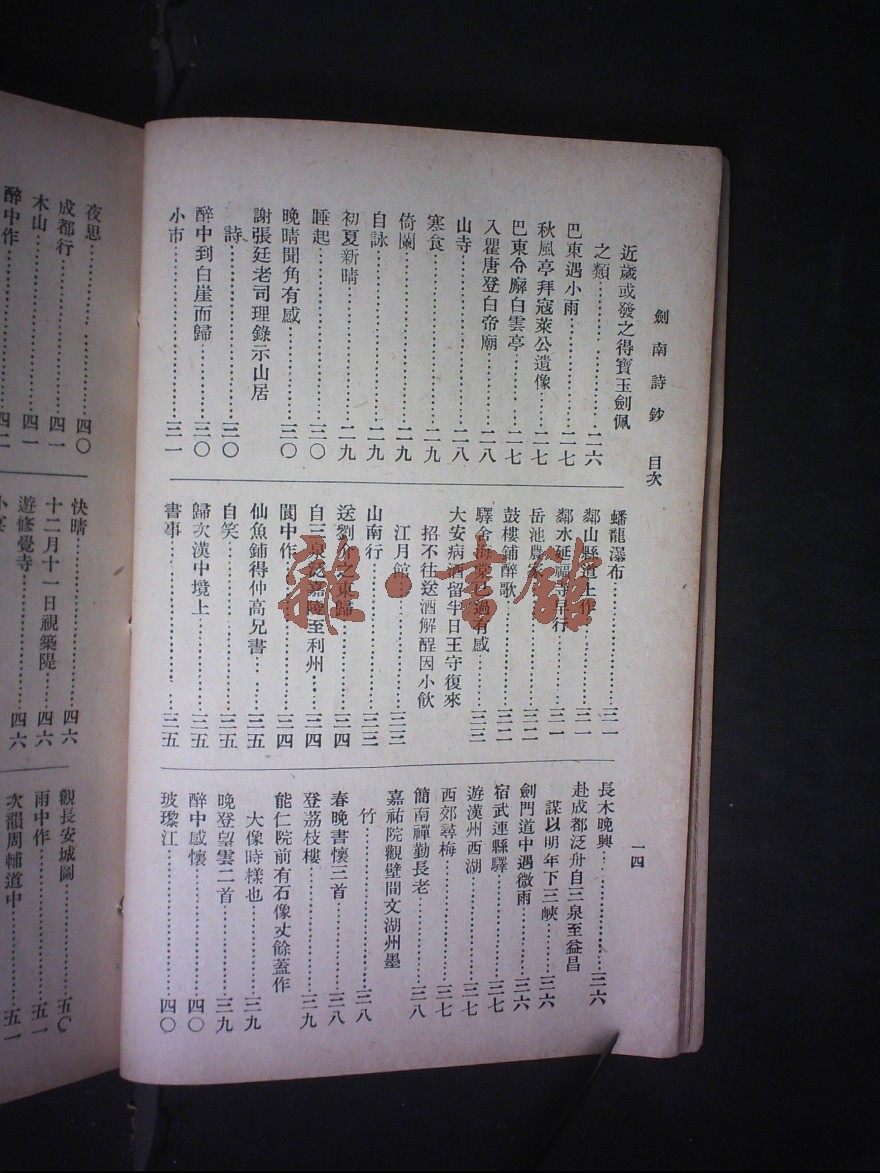 劍南詩鈔　目次
一四
近歲或發之得寶玉劍佩
之類………二六
巴東遇小雨………二七
秋風亭拜寇萊公遺像…二七
巴東令廨白雲亭………二七
入瞿唐登白帝廟………二八
山寺………二八
寒食………二九
倚闌………二九
自詠………二九
初夏新晴………二九
睡起………三〇
晚晴聞角有感………三〇
謝張廷老司理錄示山居
詩………三〇
醉中到白崖而歸………三〇
小市………三一
蟠龍瀑布………三一
鄰山縣道上作………三一
鄰水延福寺早行………三一
岳池農家………三二
鼓樓鋪醉歌………三二
驛舍海棠已過有感………三三
大安病酒留半日王守復來
招不往送酒解酲因小飲
江月館………三三
山南行………三三
送劉戒之東歸………三四
自三泉泛嘉陵至利州…三四
閬中作………三四
仙魚鋪得仲高兄書………三五
自笑………三五
歸次漢中境上………三五
書事………三五
長木晚興………三六
赴成都泛舟自三泉至益昌
謀以明年下三峽………三六
劍門道中遇微雨………三六
宿武連縣驛………三七
遊漢州西湖………三七
西郊尋梅………三七
簡南禪勤長老………三八
嘉祐院觀壁間文湖州墨
竹………三八
春晚書懷三首………三八
登荔枝樓………三九
能仁院前有石像丈餘蓋作
大像時樣也………三九
晚登望雲二首………三九
醉中感懷………四〇
玻瓈江………四〇
夜思………四〇
成都行………四一
木山………四一
醉中作………四二
快晴………四六
十二月十一日視築隄…四六
遊修覺寺………四六
觀長安城圖………五〇
雨中作………五一
次韻周輔道中………五一
雜·書館